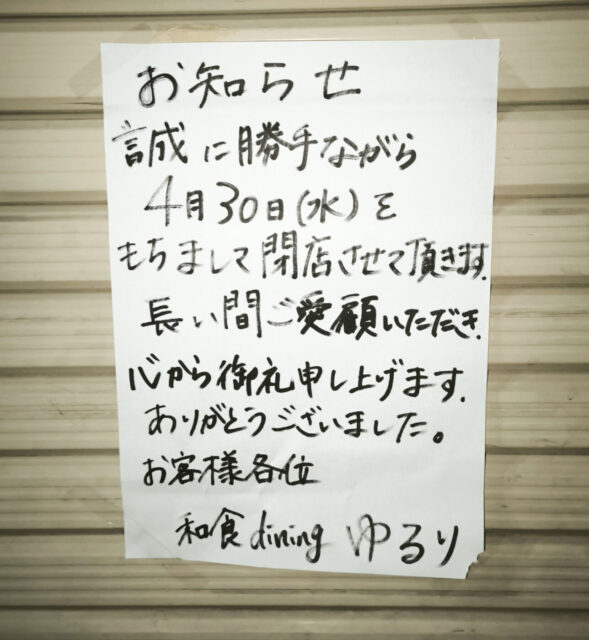 お知らせ
誠に勝手ながら
4月30日(水)を
もちまして閉店させて頂きます.
長い間ご愛顧いただき.
心から御礼申し上げます.
ありがとうございました。
お客様各位
和食dining ゆるり